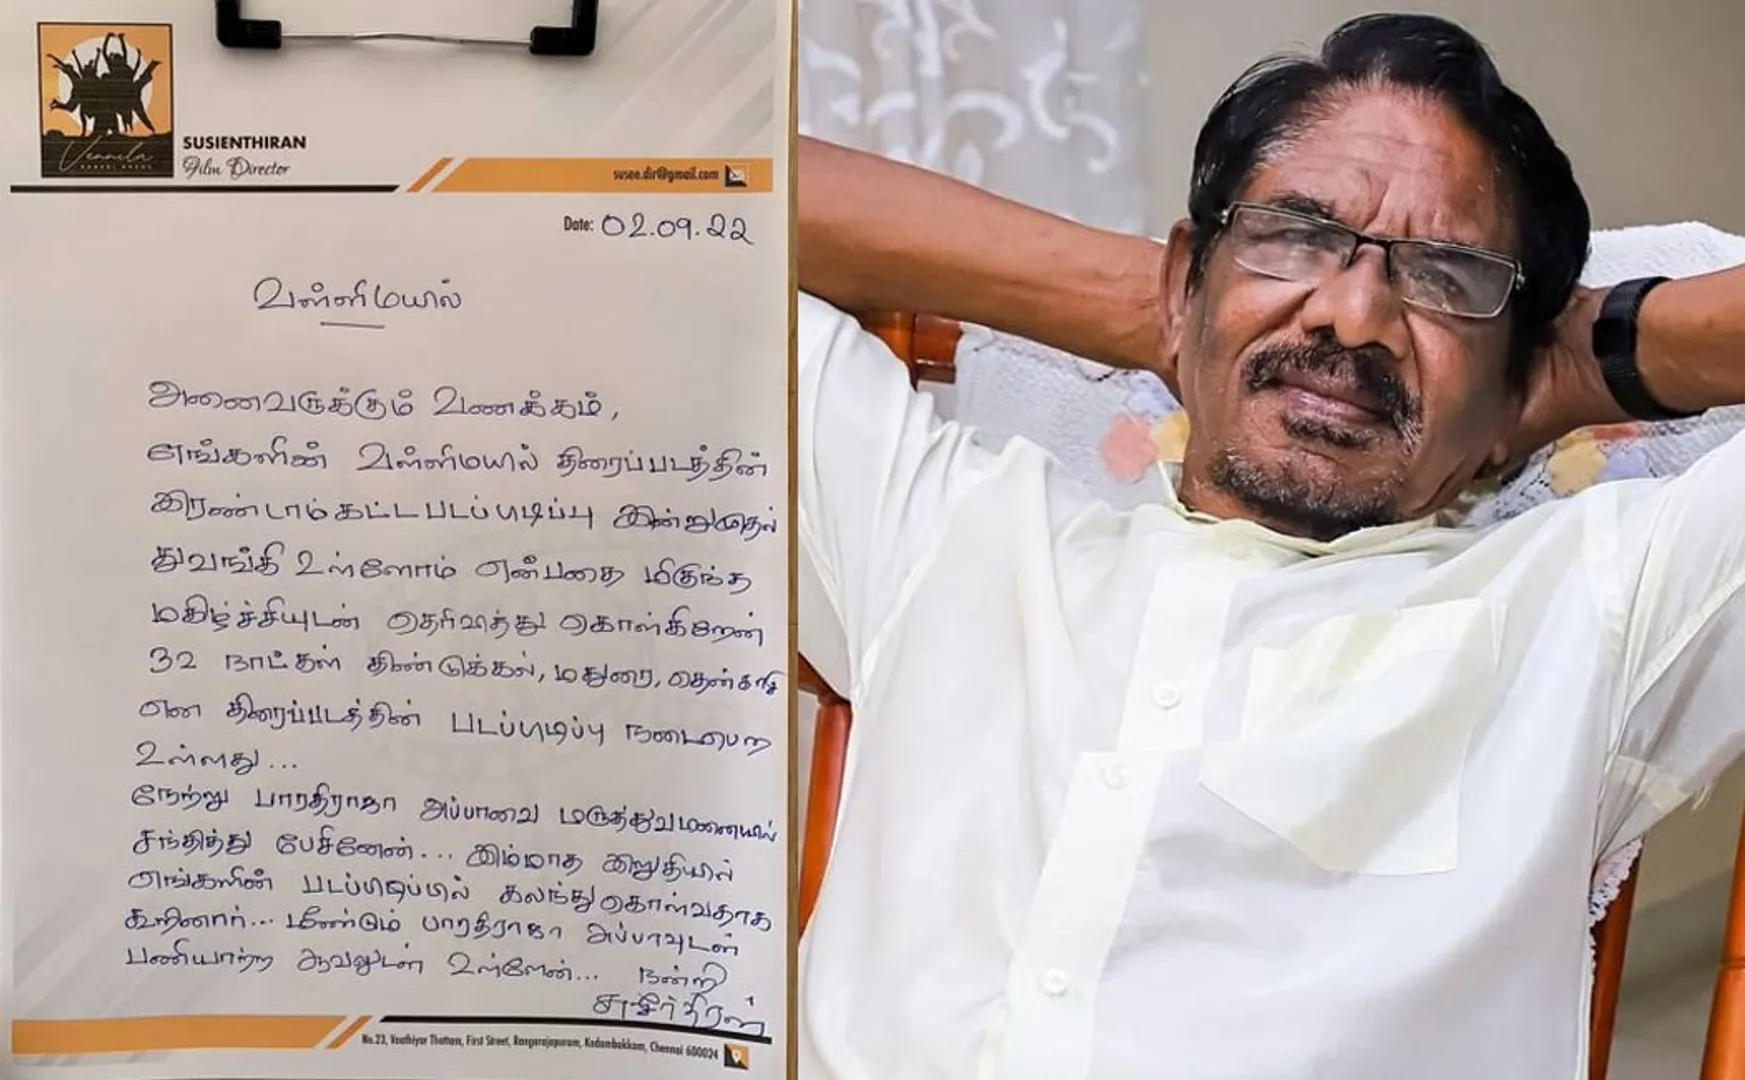 Vennila
SUSIENTHIRAN
Film Director
susee.dir@gmail.com
Date: 02.09.22
வள்ளிமயில்
அனைவருக்கும் வணக்கம்,
எங்களின் வள்ளிமயில் திரைப்படத்தின்
இரண்டாம் கட்ட படப்பிடிப்பு இன்றுமுதல்
துவங்கி உள்ளோம் என்பதை மிகுந்த
மகிழ்ச்சியுடன் தெரிவித்து கொள்கிறேன்
32 நாட்கள் திண்டுக்கல், மதுரை, தென்காசி
என திரைப்படத்தின் படப்பிடிப்பு நடைபெற
உள்ளது...
நேற்று பாரதிராஜா அப்பாவை மருத்துவமனையில்
சந்தித்து பேசினேன்... இம்மாத இறுதியில்
எங்களின் படப்பிடிப்பில் கலந்து கொள்வதாக
கூறினார்... மீண்டும் பாரதிராஜா அப்பாவுடன்
பணியாற்ற ஆவலுடன் உள்ளேன்... நன்றி
சுசீந்திரன்
No.23, Vaathiyar Thottam, First Street, Rangarajapuram, Kodambakkam, Chennai 600024